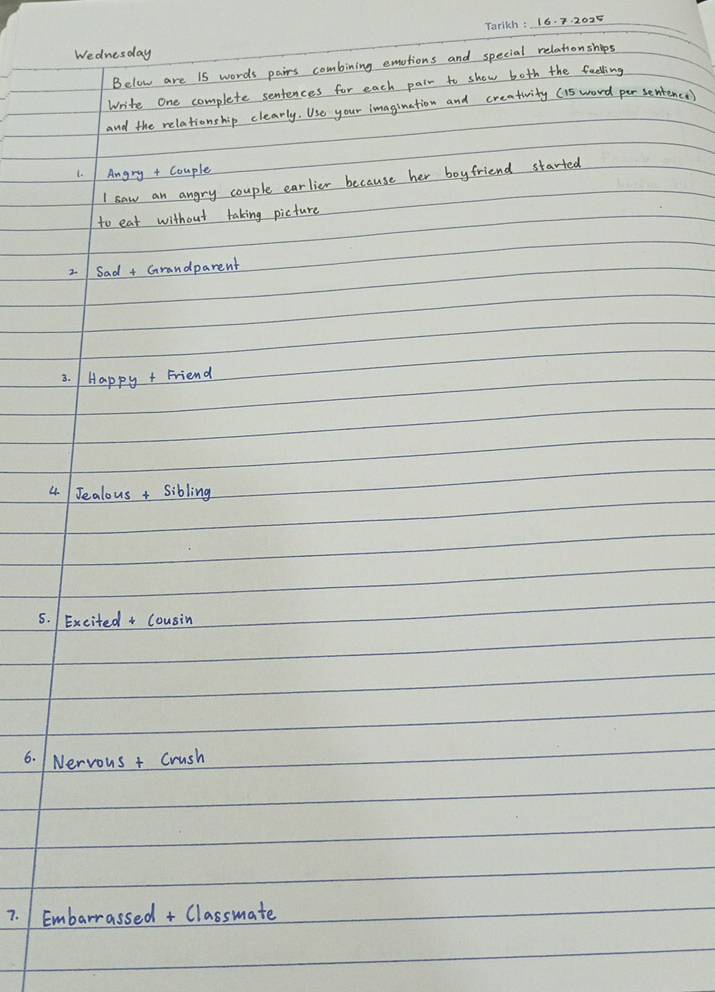 Tarikh : 16.7.2025
Wednesday
Below are 15 words pairs combining emotions and special relationships
Write One complete sentences for each pair to show both the feeling
and the relationship clearly. Use your imagination and creativity (15 word per sentence)
1. Angry + Couple
I saw an angry couple earlier because her boyfriend started
to eat without taking picture
2 Sad + Grandparent
3. Happy + Friend
4. Jealous + Sibling
5. Excited + Cousin
6. Nervous + Crush
7. Embarrassed + Classmate